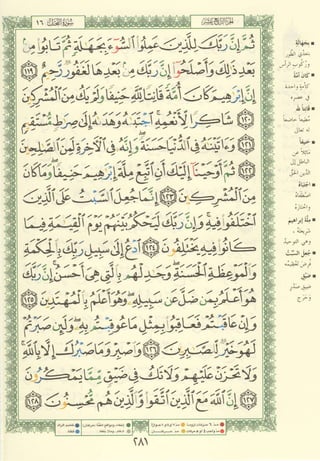 سورة النحل ١٦
ثُمَّ إِنَّ رَبَّكَ لِلَّذِينَ عَمِلُوا السُّوءَ بِجَهَالَةٍ ثُمَّ تَابُوا مِنْ
بَعْدِ ذَلِكَ وَأَصْلَحُوا إِنَّ رَبَّكَ مِنْ بَعْدِهَا لَغَفُورٌ رَحِيمٌ ١١٩
إِنَّ إِبْرَاهِيمَ كَانَ أُمَّةً قَانِتًا لِلَّهِ حَنِيفًا وَلَمْ يَكُ مِنَ الْمُشْرِكِينَ
١٢٠ شَاكِرًا لِأَنْعُمِهِ اجْتَبَاهُ وَهَدَاهُ إِلَى صِرَاطٍ مُسْتَقِيمٍ
١٢١ وَآتَيْنَاهُ فِي الدُّنْيَا حَسَنَةً وَإِنَّهُ فِي الْآخِرَةِ لَمِنَ الصَّالِحِينَ
١٢٢ ثُمَّ أَوْحَيْنَا إِلَيْكَ أَنِ اتَّبِعْ مِلَّةَ إِبْرَاهِيمَ حَنِيفًا وَمَا كَانَ
مِنَ الْمُشْرِكِينَ ١٢٣ إِنَّمَا جُعِلَ السَّبْتُ عَلَى الَّذِينَ
اخْتَلَفُوا فِيهِ وَإِنَّ رَبَّكَ لَيَحْكُمُ بَيْنَهُمْ يَوْمَ الْقِيَامَةِ فِيمَا
كَانُوا فِيهِ يَخْتَلِفُونَ ١٢٤ ادْعُ إِلَى سَبِيلِ رَبِّكَ بِالْحِكْمَةِ
وَالْمَوْعِظَةِ الْحَسَنَةِ وَجَادِلْهُمْ بِالَّتِي هِيَ أَحْسَنُ إِنَّ رَبَّكَ
هُوَ أَعْلَمُ بِمَنْ ضَلَّ عَنْ سَبِيلِهِ وَهُوَ أَعْلَمُ بِالْمُهْتَدِينَ ١٢٥
وَإِنْ عَاقَبْتُمْ فَعَاقِبُوا بِمِثْلِ مَا عُوقِبْتُمْ بِهِ وَلَئِنْ صَبَرْتُمْ
لَهُوَ خَيْرٌ لِلصَّابِرِينَ ١٢٦ وَاصْبِرْ وَمَا صَبْرُكَ إِلَّا بِاللَّهِ
وَلَا تَحْزَنْ عَلَيْهِمْ وَلَا تَكُ فِي ضَيْقٍ مِمَّا يَمْكُرُونَ
١٢٧ إِنَّ اللَّهَ مَعَ الَّذِينَ اتَّقَوْا وَالَّذِينَ هُمْ مُحْسِنُونَ ١٢٨
بجهالة
كان أمة
قانتا لله
حنيفا
اجتباه
ملة إبراهيم
جعل السبت
ضيق
٢٨١